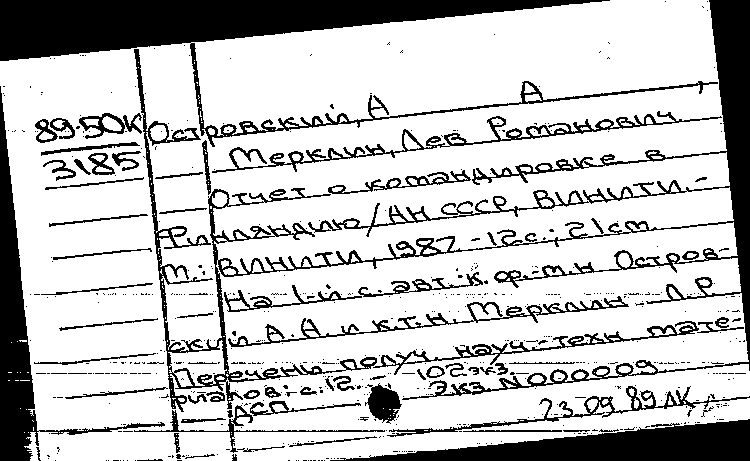 89-50К
3185
Островский, А А ,
Мерклин, Лев Романович
Отчет о командировке в
Финляндию / АН СССР, ВИНИТИ. -
М.: ВИНИТИ, 1987. - 12 с.; 21 см.
На 1-й с. авт.: к. ф.-м. н Остров-
ский А. А. и к. т. н. Мерклин Л. Р
Перечень получ. науч.-техн мате-
риалов: с. 12. - 102 экз.
Экз. N 000009
ДСП.
23 09 89 ЛК